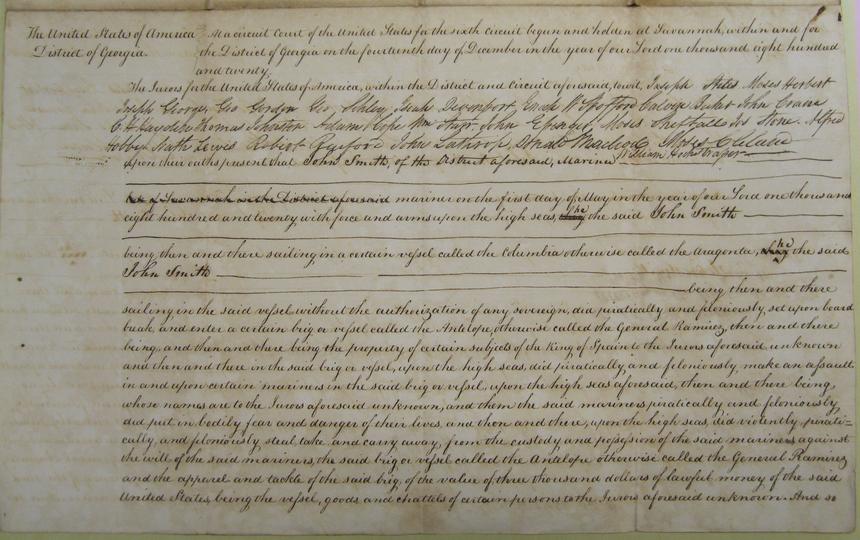 The United States of America
District of Georgia.
At a circuit Court of the United States for the sixth Circuit begun and holden at Savannah, within and for
the District of Georgia on the fourteenth day of December in the year of our Lord one thousand eight hundred
and twenty;
The Jurors for the United States of America, within the District and Circuit aforesaid, to wit, Joseph Stiles Moses Herbert
Joseph George, Geo Gordon Geo Schley Isaac Davenport, Enoch W Spofford Calvin Baker John Craven
Thomas Johnston Adam Cope Wm John Moses Sheftall Jos Stone. Alfred
Nath Lewis Robert Raeford John Lathrop,
William
upon their oaths present that John Smith, of the District aforesaid, Mariner
late of Savannah in the District aforesaid mariner on the first day of May in the year of our Lord one thousand
eight hundred and twenty, with force and arms upon the high seas, he the said John Smith
being then and there sailing in a certain vessel called the Columbia otherwise called the Arraganta, he the said
John Smith
being then and there
sailing in the said vessel without the authorization of any sovereign, did piratically and feloniously, set upon board
break and enter a certain brig or vessel called the Antelope, otherwise called the General Ramirez, then and there
being, and then and there being the property of certain subjects of the King of Spain to the Jurors aforesaid unknown
and then and there in the said brig or vessel, upon the high seas, did piratically, and feloniously, make an assault
in and upon certain mariners in the said brig or vessel, upon the high seas aforesaid, then and there being,
whose names are to the Jurors aforesaid unknown, and them the said mariners piratically and feloniously,
did put in bodily fear and danger of their lives, and then and there, upon the high seas, did violently, pirati=
cally, and feloniously steal, take and carry away, from the custody and possession of the said mariners against
the will of the said mariners, the said brig or vessel called the Antelope otherwise called the General Ramirez
and the apparel and tackle of the said brig, of the value of three thousand dollars of lawful money of the said
United States, being the vessel, goods and chattels of certain persons to the Jurors aforesaid unknown. And so